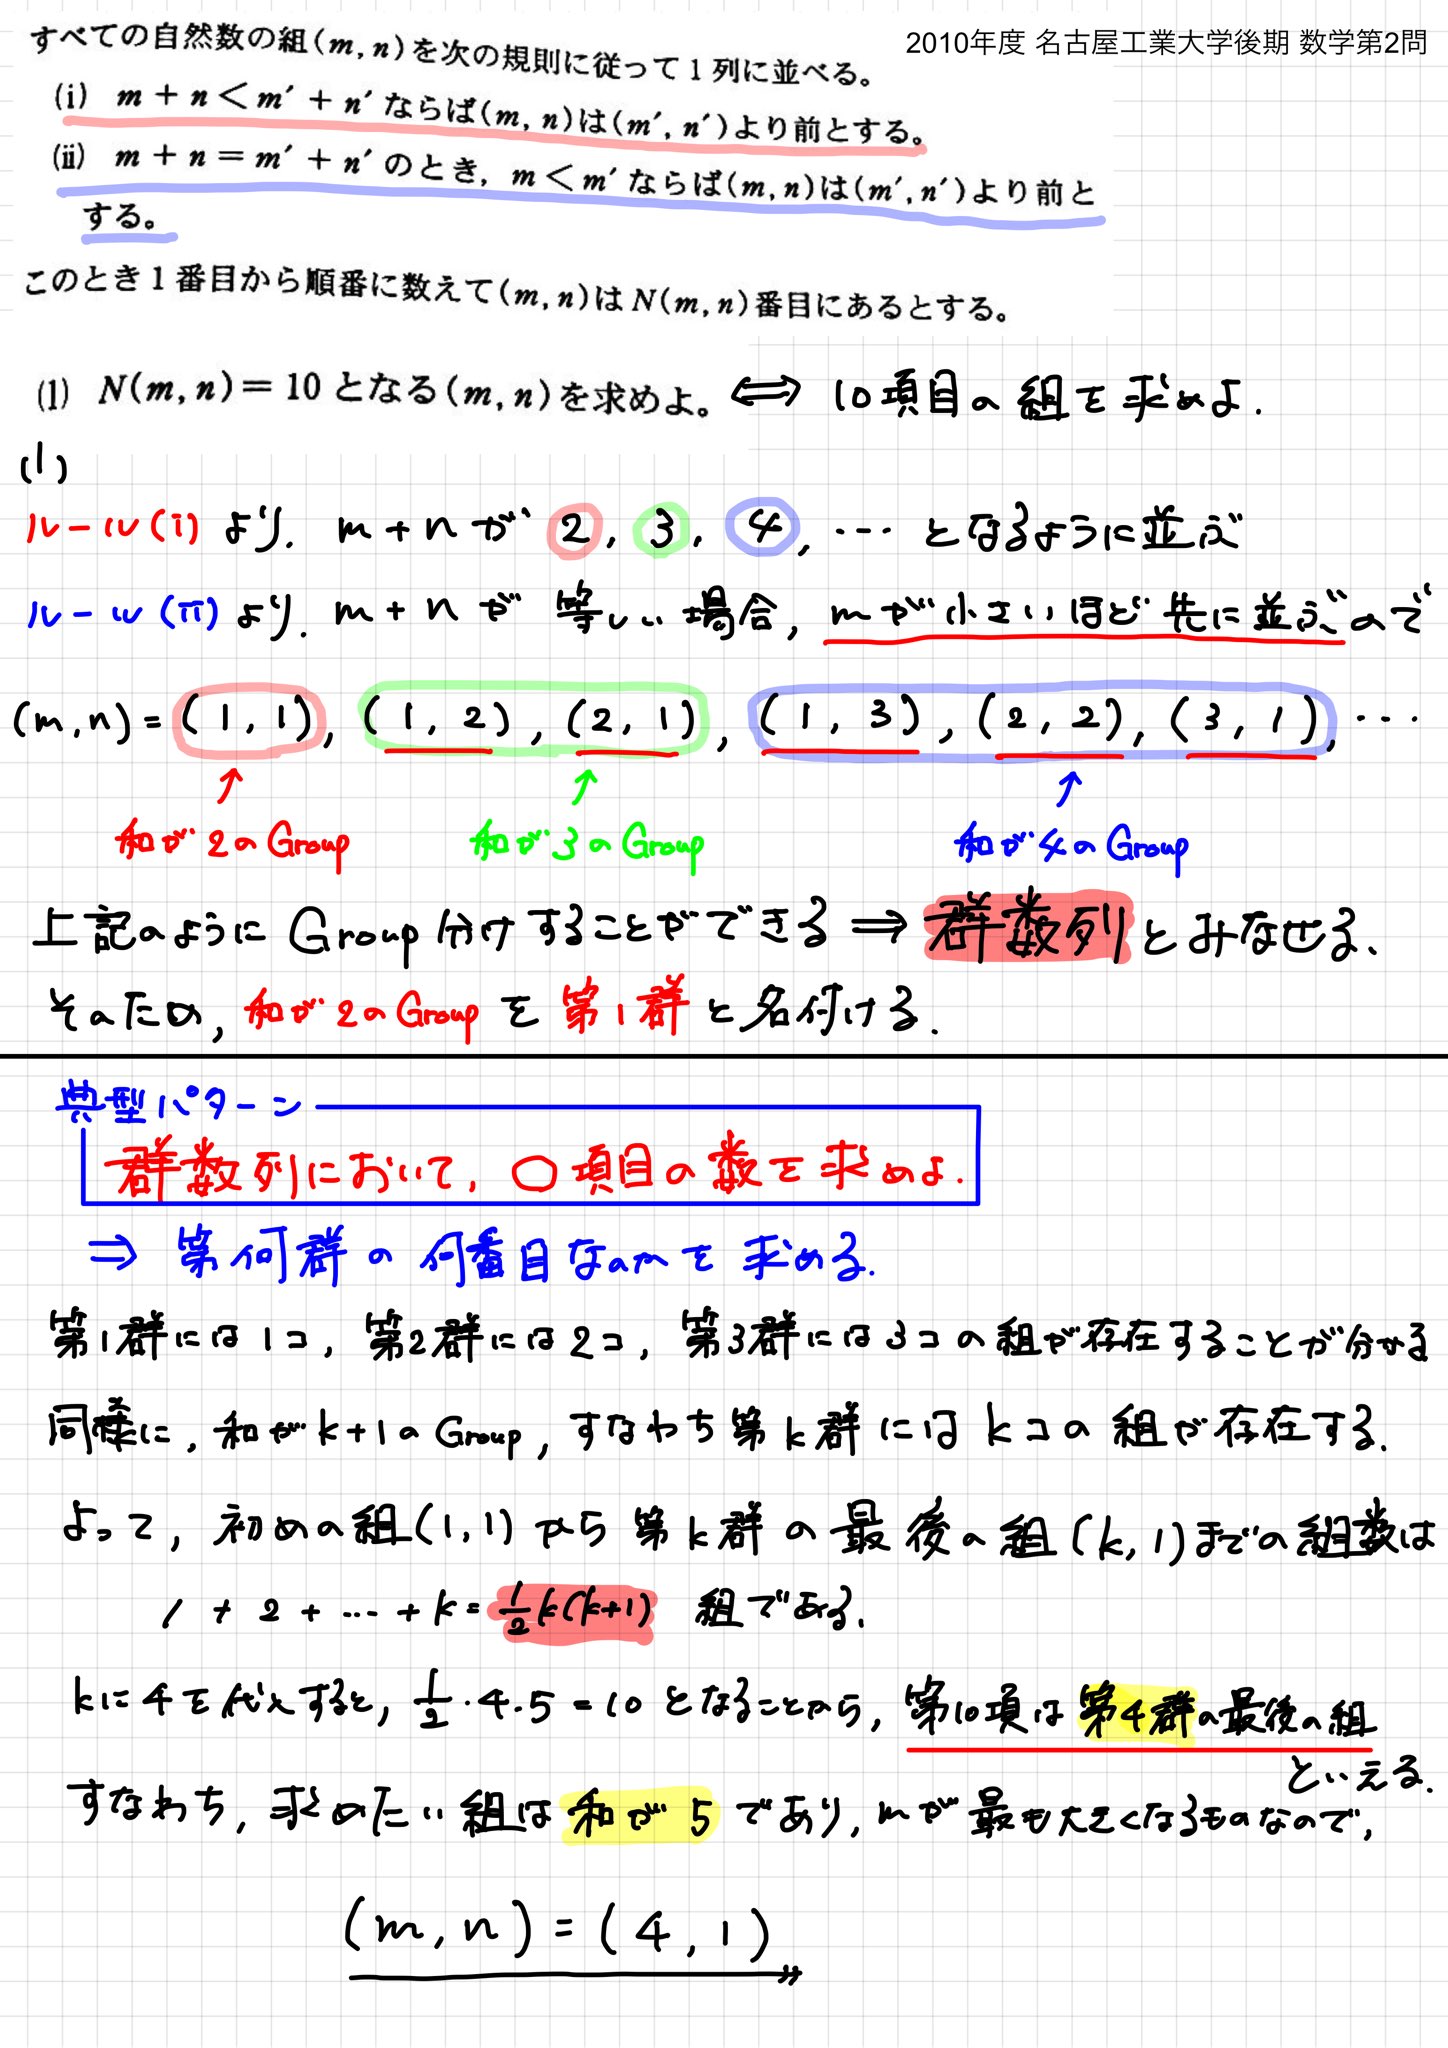 2010年度 名古屋工業大学後期 数学第2問
すべての自然数の組(m, n)を次の規則に従って1列に並べる。
(i) m + n < m′ + n′ ならば(m, n)は(m′, n′)より前とする。
(ii) m + n = m′ + n′ のとき, m < m′ ならば(m, n)は(m′, n′)より前と
する。
このとき1番目から順番に数えて(m, n)はN(m, n)番目にあるとする。
(1) N(m, n) = 10 となる(m, n)を求めよ。 ⇔ 10項目の組を求めよ.
(1)
ルール(i) より, m+n が 2, 3, 4, … となるように並ぶ
ルール(ii) より, m+n が 等しい場合, mが小さいほど先に並ぶので
(m, n) = (1, 1), (1, 2), (2, 1), (1, 3), (2, 2), (3, 1), …
↑ ↑ ↑
和が2のGroup 和が3のGroup 和が4のGroup
上記のように Group 分けすることができる ⇒ 群数列 とみなせる.
そのため, 和が2のGroup を 第1群 と名付ける.
典型パターン
群数列において, ○項目の数を求めよ.
⇒ 第何群の何番目なのかを求める.
第1群には1コ, 第2群には2コ, 第3群には3コの組が存在することが分かる
同様に, 和がk+1のGroup, すなわち第k群にはkコの組が存在する.
よって, 初めの組(1, 1)から第k群の最後の組(k, 1)までの組数は
1 + 2 + … + k = 1/2 k(k+1) 組である.
kに4を代入すると, 1/2・4・5 = 10 となることから, 第10項は第4群の最後の組
といえる.
すなわち, 求めたい組は和が5であり, mが最も大きくなるものなので,
(m, n) = (4, 1)